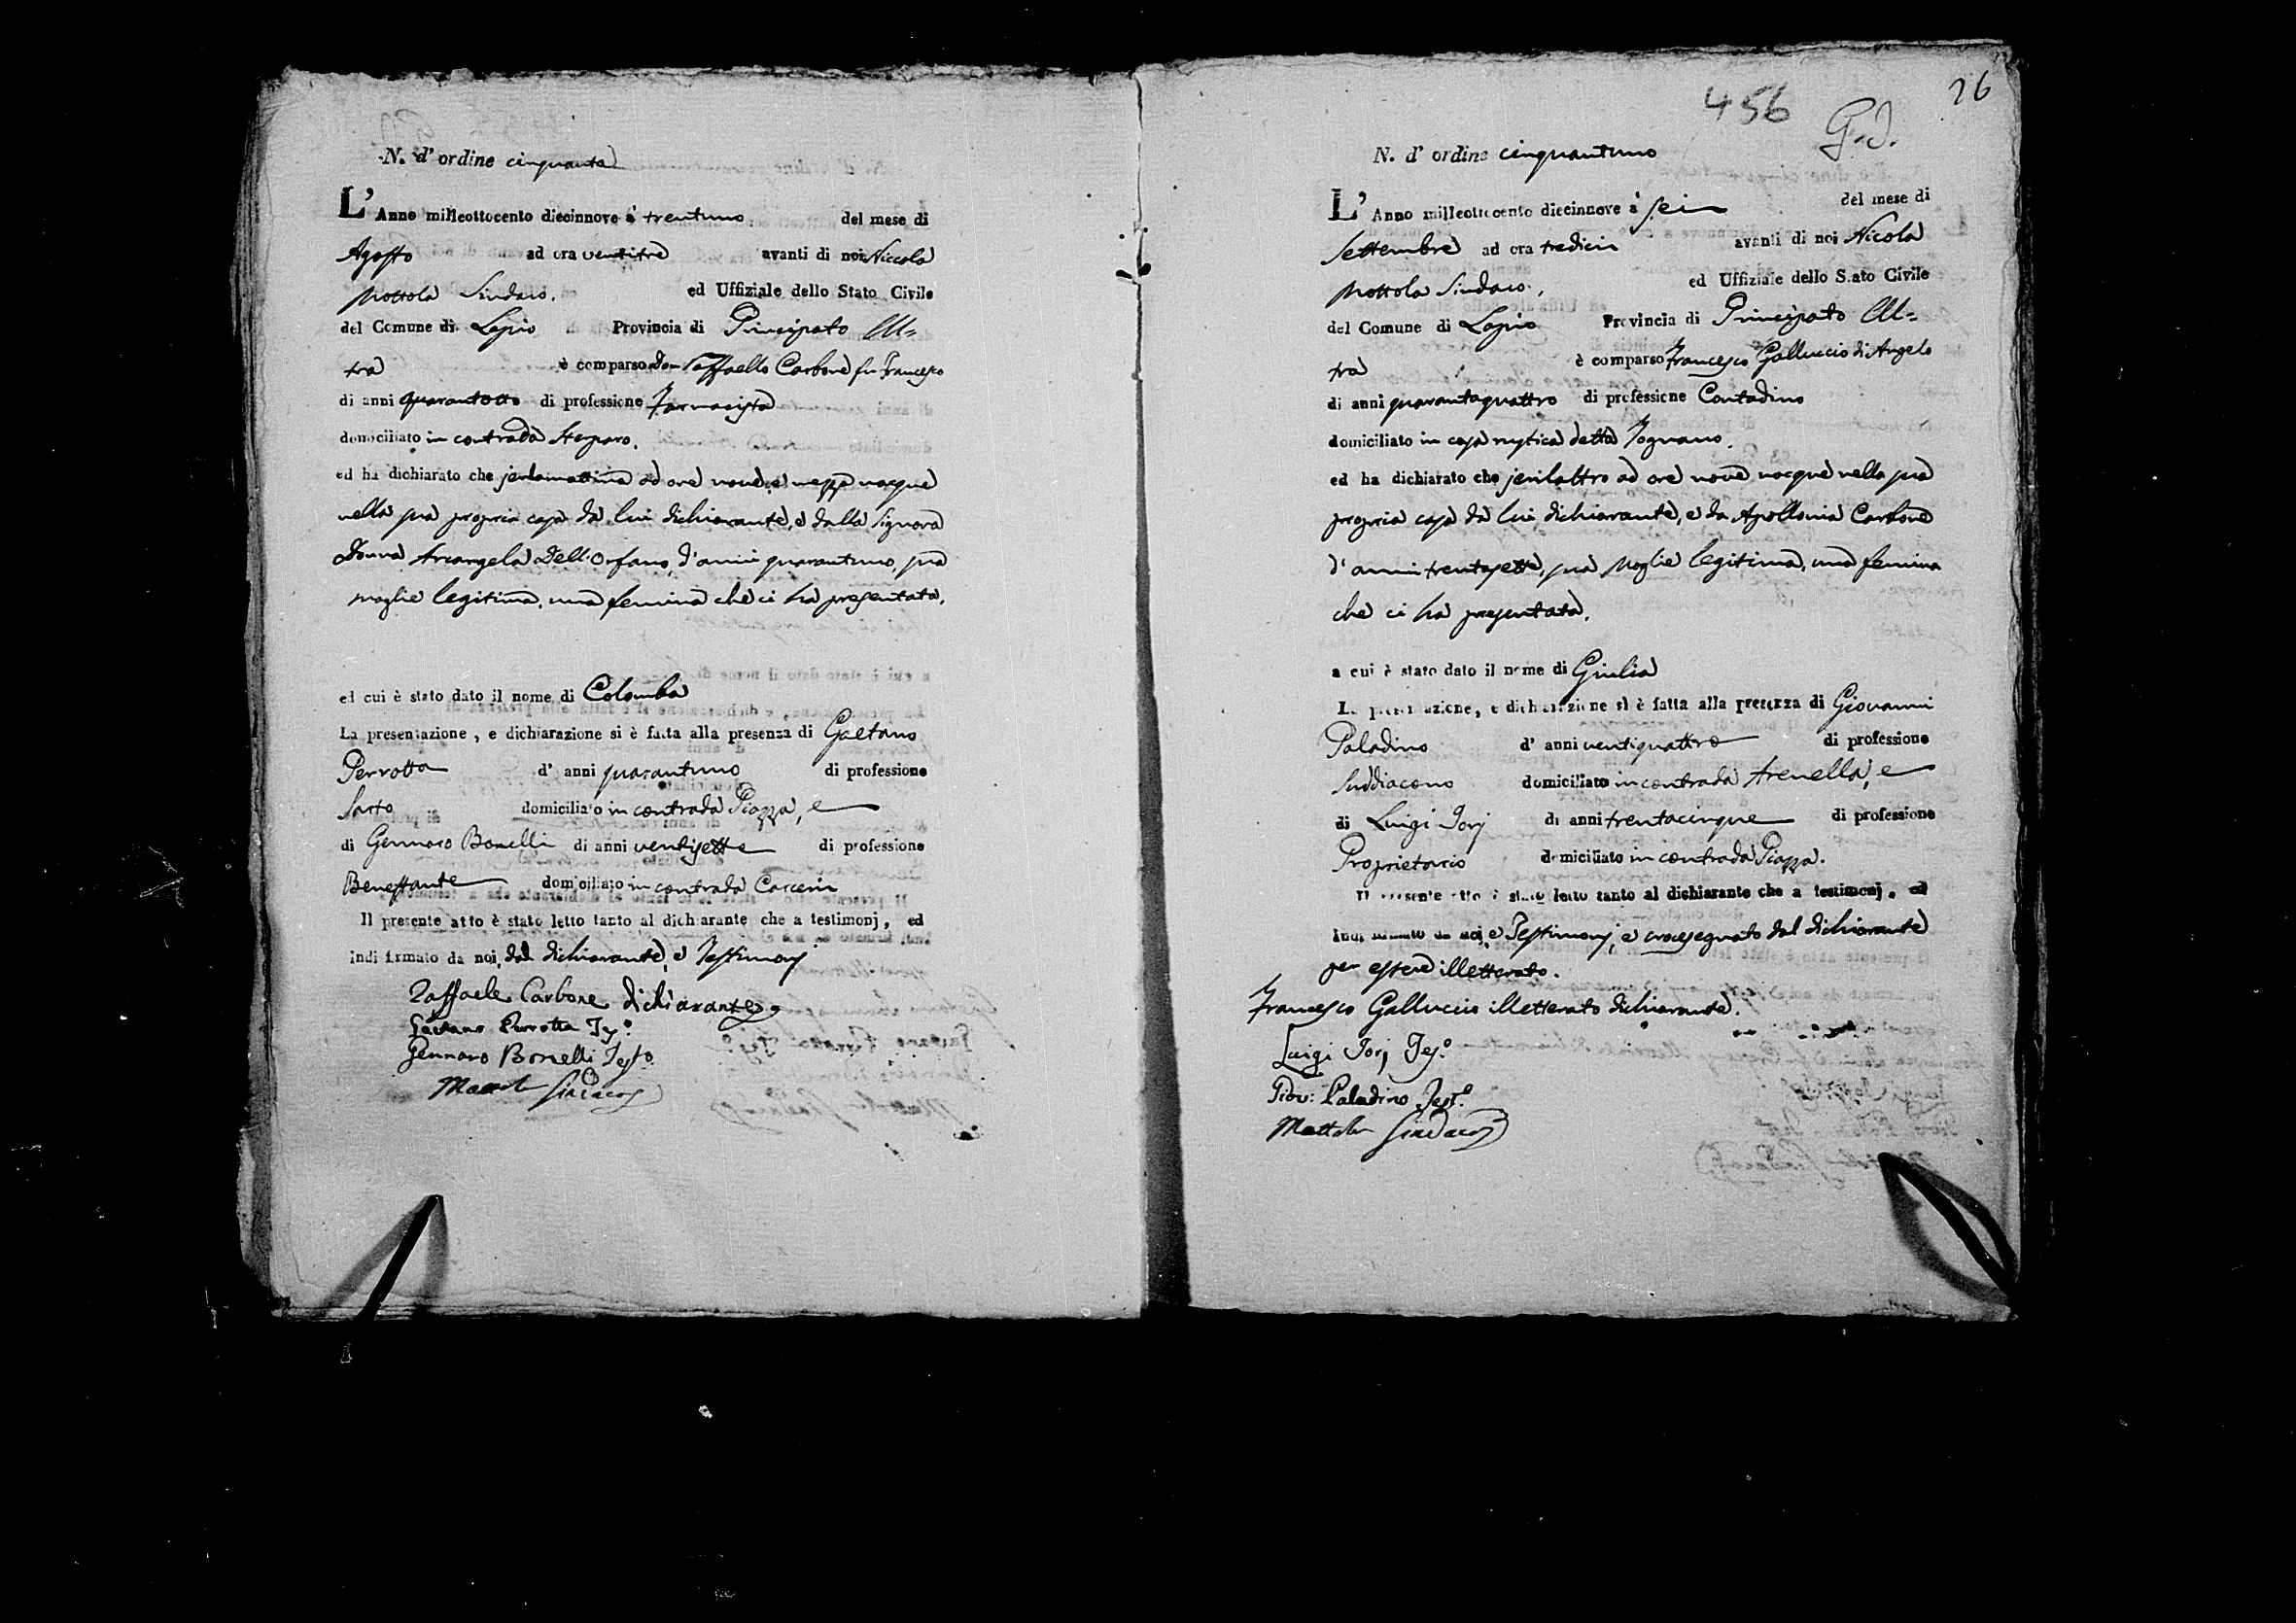 N. d' ordine cinquanta
L' Anno milleottocento diecinnove a' trentuno del mese di
Agosto ad ora ventitre avanti di noi Niccola
Mottola Sindaco. ed Uffiziale dello Stato Civile
del Comune di Lapio Provincia di Principato Ul=
tra è comparso Don Raffaello Carbone fu Francesco
di anni quarantotto di professione Farmacista
domiciliato in contrada Steparo.
ed ha dichiarato che jerlamattina ad ore nove, e mezza nacque
nella sua propria casa da lui dichiarante, e dalla Signora
Donna Arcangela Dell'Orfano, d'anni quarantuno, sua
moglie legitima, una femina che ci ha presentata.
ed cui è stato dato il nome di Colomba
La presentazione, e dichiarazione si è fatta alla presenza di Gaetano
Perrotta d' anni quarantuno di professione
Sarto domiciliato in contrada Piazza, e
di Gennaro Bonelli di anni ventisette di professione
Benestante domiciliato in contrada Carceri
Il presente atto è stato letto tanto al dichiarante che a testimonj, ed
indi firmato da noi, dal dichiarante, e Testimonj
Raffaele Carbone dichiarante
Gaetano Perrotta Tes:º
Gennaro Bonelli Testº
Mottola Sindaco
456
26
N. d' ordine cinquantuno
L' Anno milleottocento diecinnove a' sei del mese di
Settembre ad ora tredici avanti di noi Nicola
Mottola Sindaco. ed Uffiziale dello Stato Civile
del Comune di Lapio Provincia di Principato Ul=
tra è comparso Francesco Galluccio di Angelo
di anni quarantaquattro di professione Contadino
domiciliato in casa rustica detta Fognano.
ed ha dichiarato che jerilaltro ad ore nove nacque nella sua
propria casa da lui dichiarante, e da Apollonia Carbone
d' anni trentasette, sua Moglie legitima, una femina
che ci ha presentata.
a cui è stato dato il nome di Giulia
La presentazione, e dichiarazione si è fatta alla presenza di Giovanni
Paladino d' anni ventiquattro di professione
Suddiacono domiciliato in contrada Arenella, e
di Luigi Jorj di anni trentacinque di professione
Proprietario domiciliato in contrada Piazza.
Il presente atto è stato letto tanto al dichiarante che a testimonj, ed
indi firmato da noi, e Testimonj, e crocesegnato dal dichiarante
per essere illetterato.
Francesco Galluccio illetterato dichiarante.
Luigi Jorj Tes:º
Giov: Paladino Test:º
Mottola Sindaco